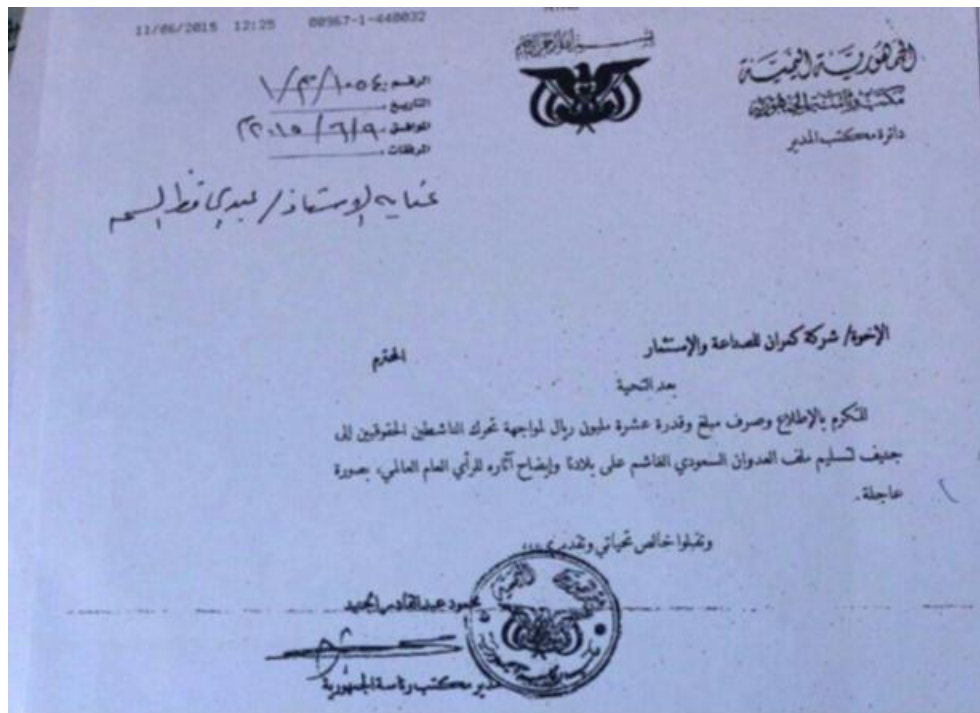 11/06/2015 12:25 00967-1-440032
بسم الله الرحمن الرحيم
الجمهورية اليمنية
مكتب رئاسة الجمهورية
دائرة مكتب المدير
الرقم: ١/٣/١٠٥٤
التاريخ:
الموافق: ٢٠١٥/٦/٩م
المرفقات:
عناية الاستاذ/ عبدالحافظ السمه
الإخوة/ شركة كمران للصناعة والإستثمار المحترم
بعد التحية
للتكرم بالإطلاع وصرف مبلغ وقدرة عشرة مليون ريال لمواجهة تحرك الناشطين الحقوقيين إلى
جنيف لتسليم ملف العدوان السعودي الغاشم على بلادنا وإيضاح آثاره للرأي العام العالمي، بصورة
عاجلة.
وتقبلوا خالص تحياتي وتقديري،،،
محمود عبدالقادر الجنيد
مدير مكتب رئاسة الجمهورية